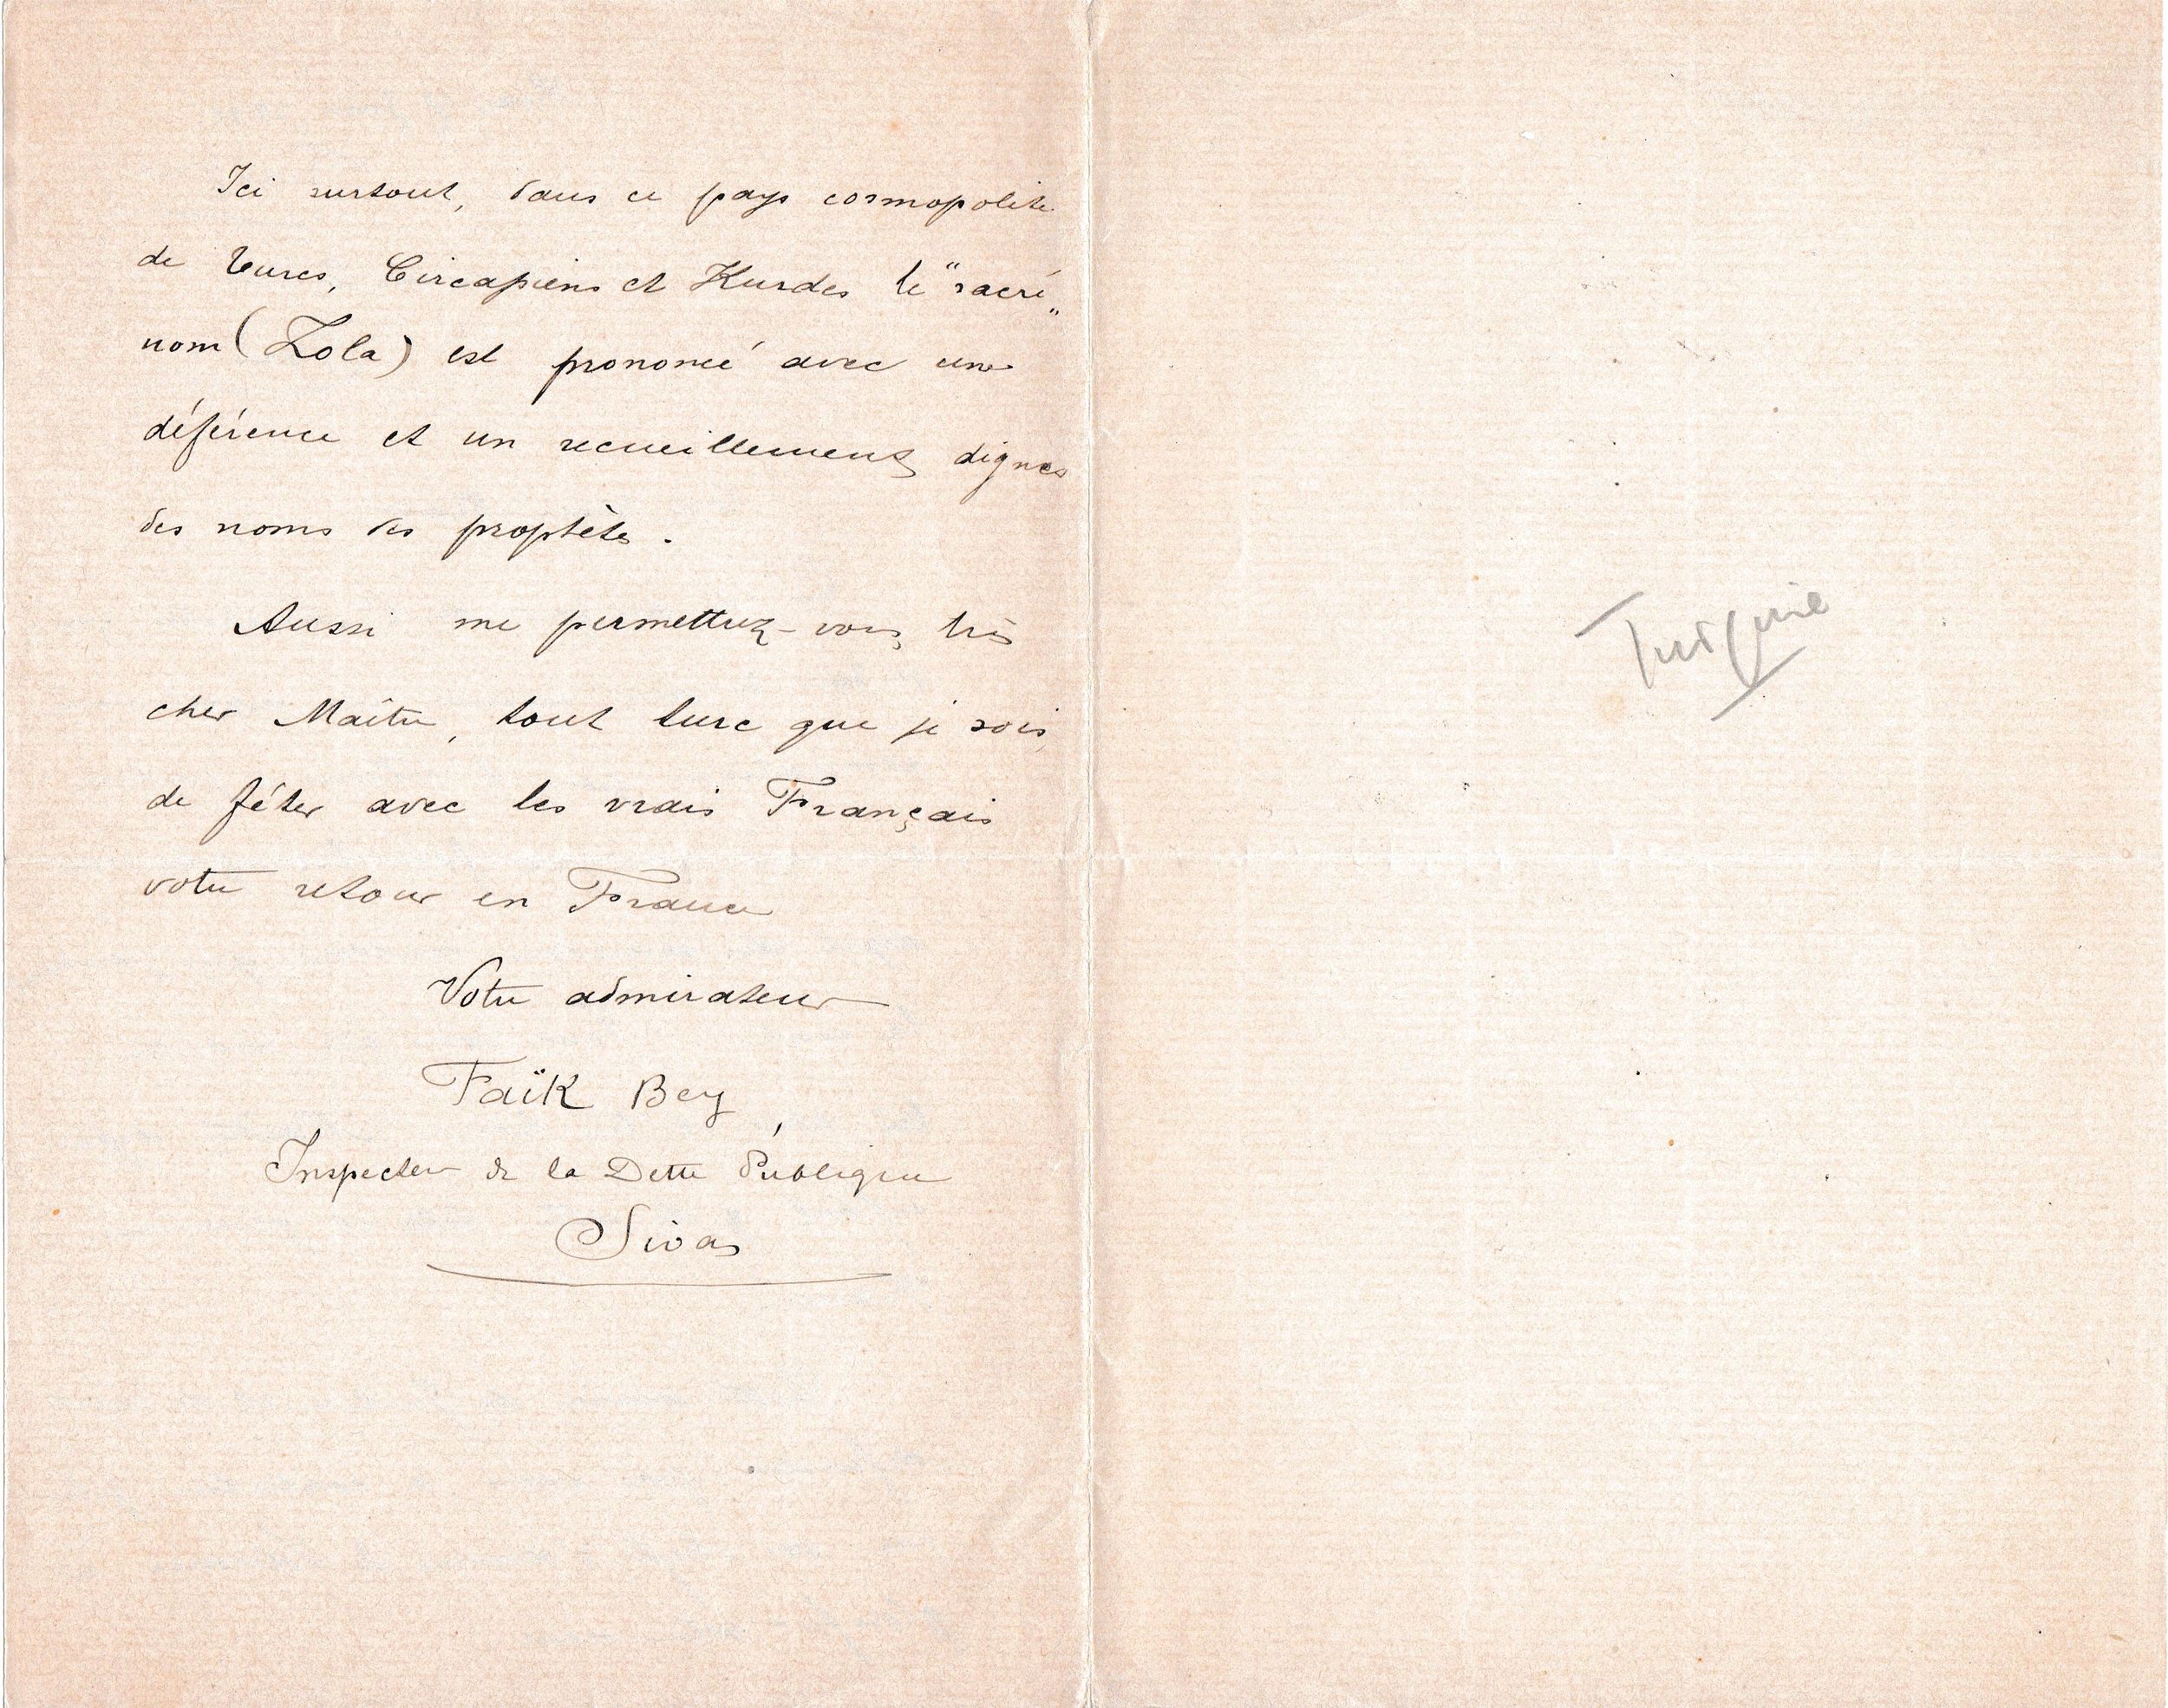 Ici surtout, dans ce pays cosmopolite
de Turcs, Circassiens et Kurdes le "sacré„
nom (Zola) est prononcé avec une
déférence et un recueillement dignes
des noms des prophètes.
Aussi me permettrez-vous, très
cher Maître, tout turc que je sois,
de fêter avec les vrais Français
votre retour en France
Votre admirateur
Faïk Bey
Inspecteur de la Dette Publique
Sivas
Turquie